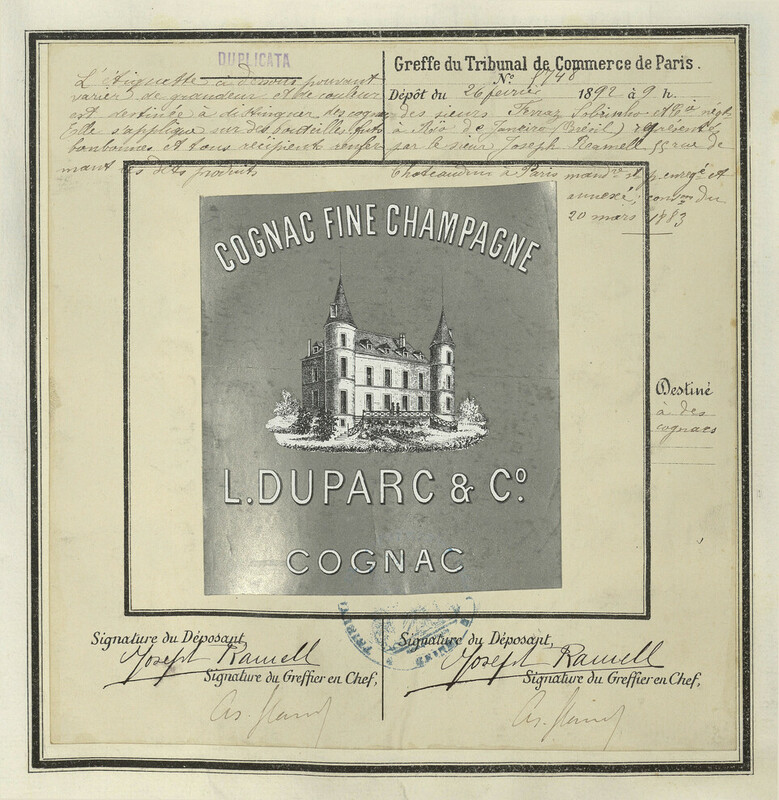 DUPLICATA
L'Étiquette ci-dessous pouvant
varier de grandeur et de couleur
est destinée à distinguer des cognacs
Elle s'applique sur des bouteilles, fûts
bonbonnes et tous récipients renfer-
mant les dits produits
Greffe du Tribunal de Commerce de Paris.
N° 8748
Dépôt du 26 février 1892 à 9 h.
des sieurs Ferraz Sobrinho & Cie négts
à Rio de Janeiro (Brésil) représentés
par le sieur Joseph Ramell 55 rue de
Chateaudun à Paris mandre st p. enregé et
annexé; conson du
20 mars 1883
COGNAC FINE CHAMPAGNE
L. DUPARC & Co.
COGNAC
Destiné
à des
cognacs
Signature du Déposant,
Joseph Ramell
Signature du Greffier en Chef,
Signature du Déposant,
Joseph Ramell
Signature du Greffier en Chef,